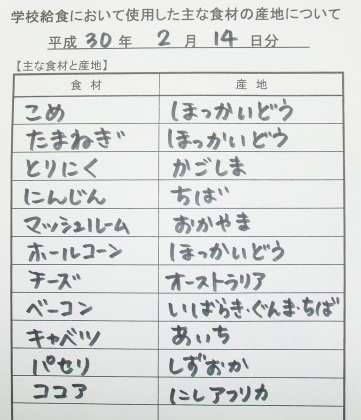 学校給食において使用した主な食材の産地について
平成 30 年 2 月 14 日分
【主な食材と産地】
食材 産地
こめ ほっかいどう
たまねぎ ほっかいどう
とりにく かごしま
にんじん ちば
マッシュルーム おかやま
ホールコーン ほっかいどう
チーズ オーストラリア
ベーコン いばらき・ぐんま・ちば
キャベツ あいち
パセリ しずおか
ココア にしアフリカ